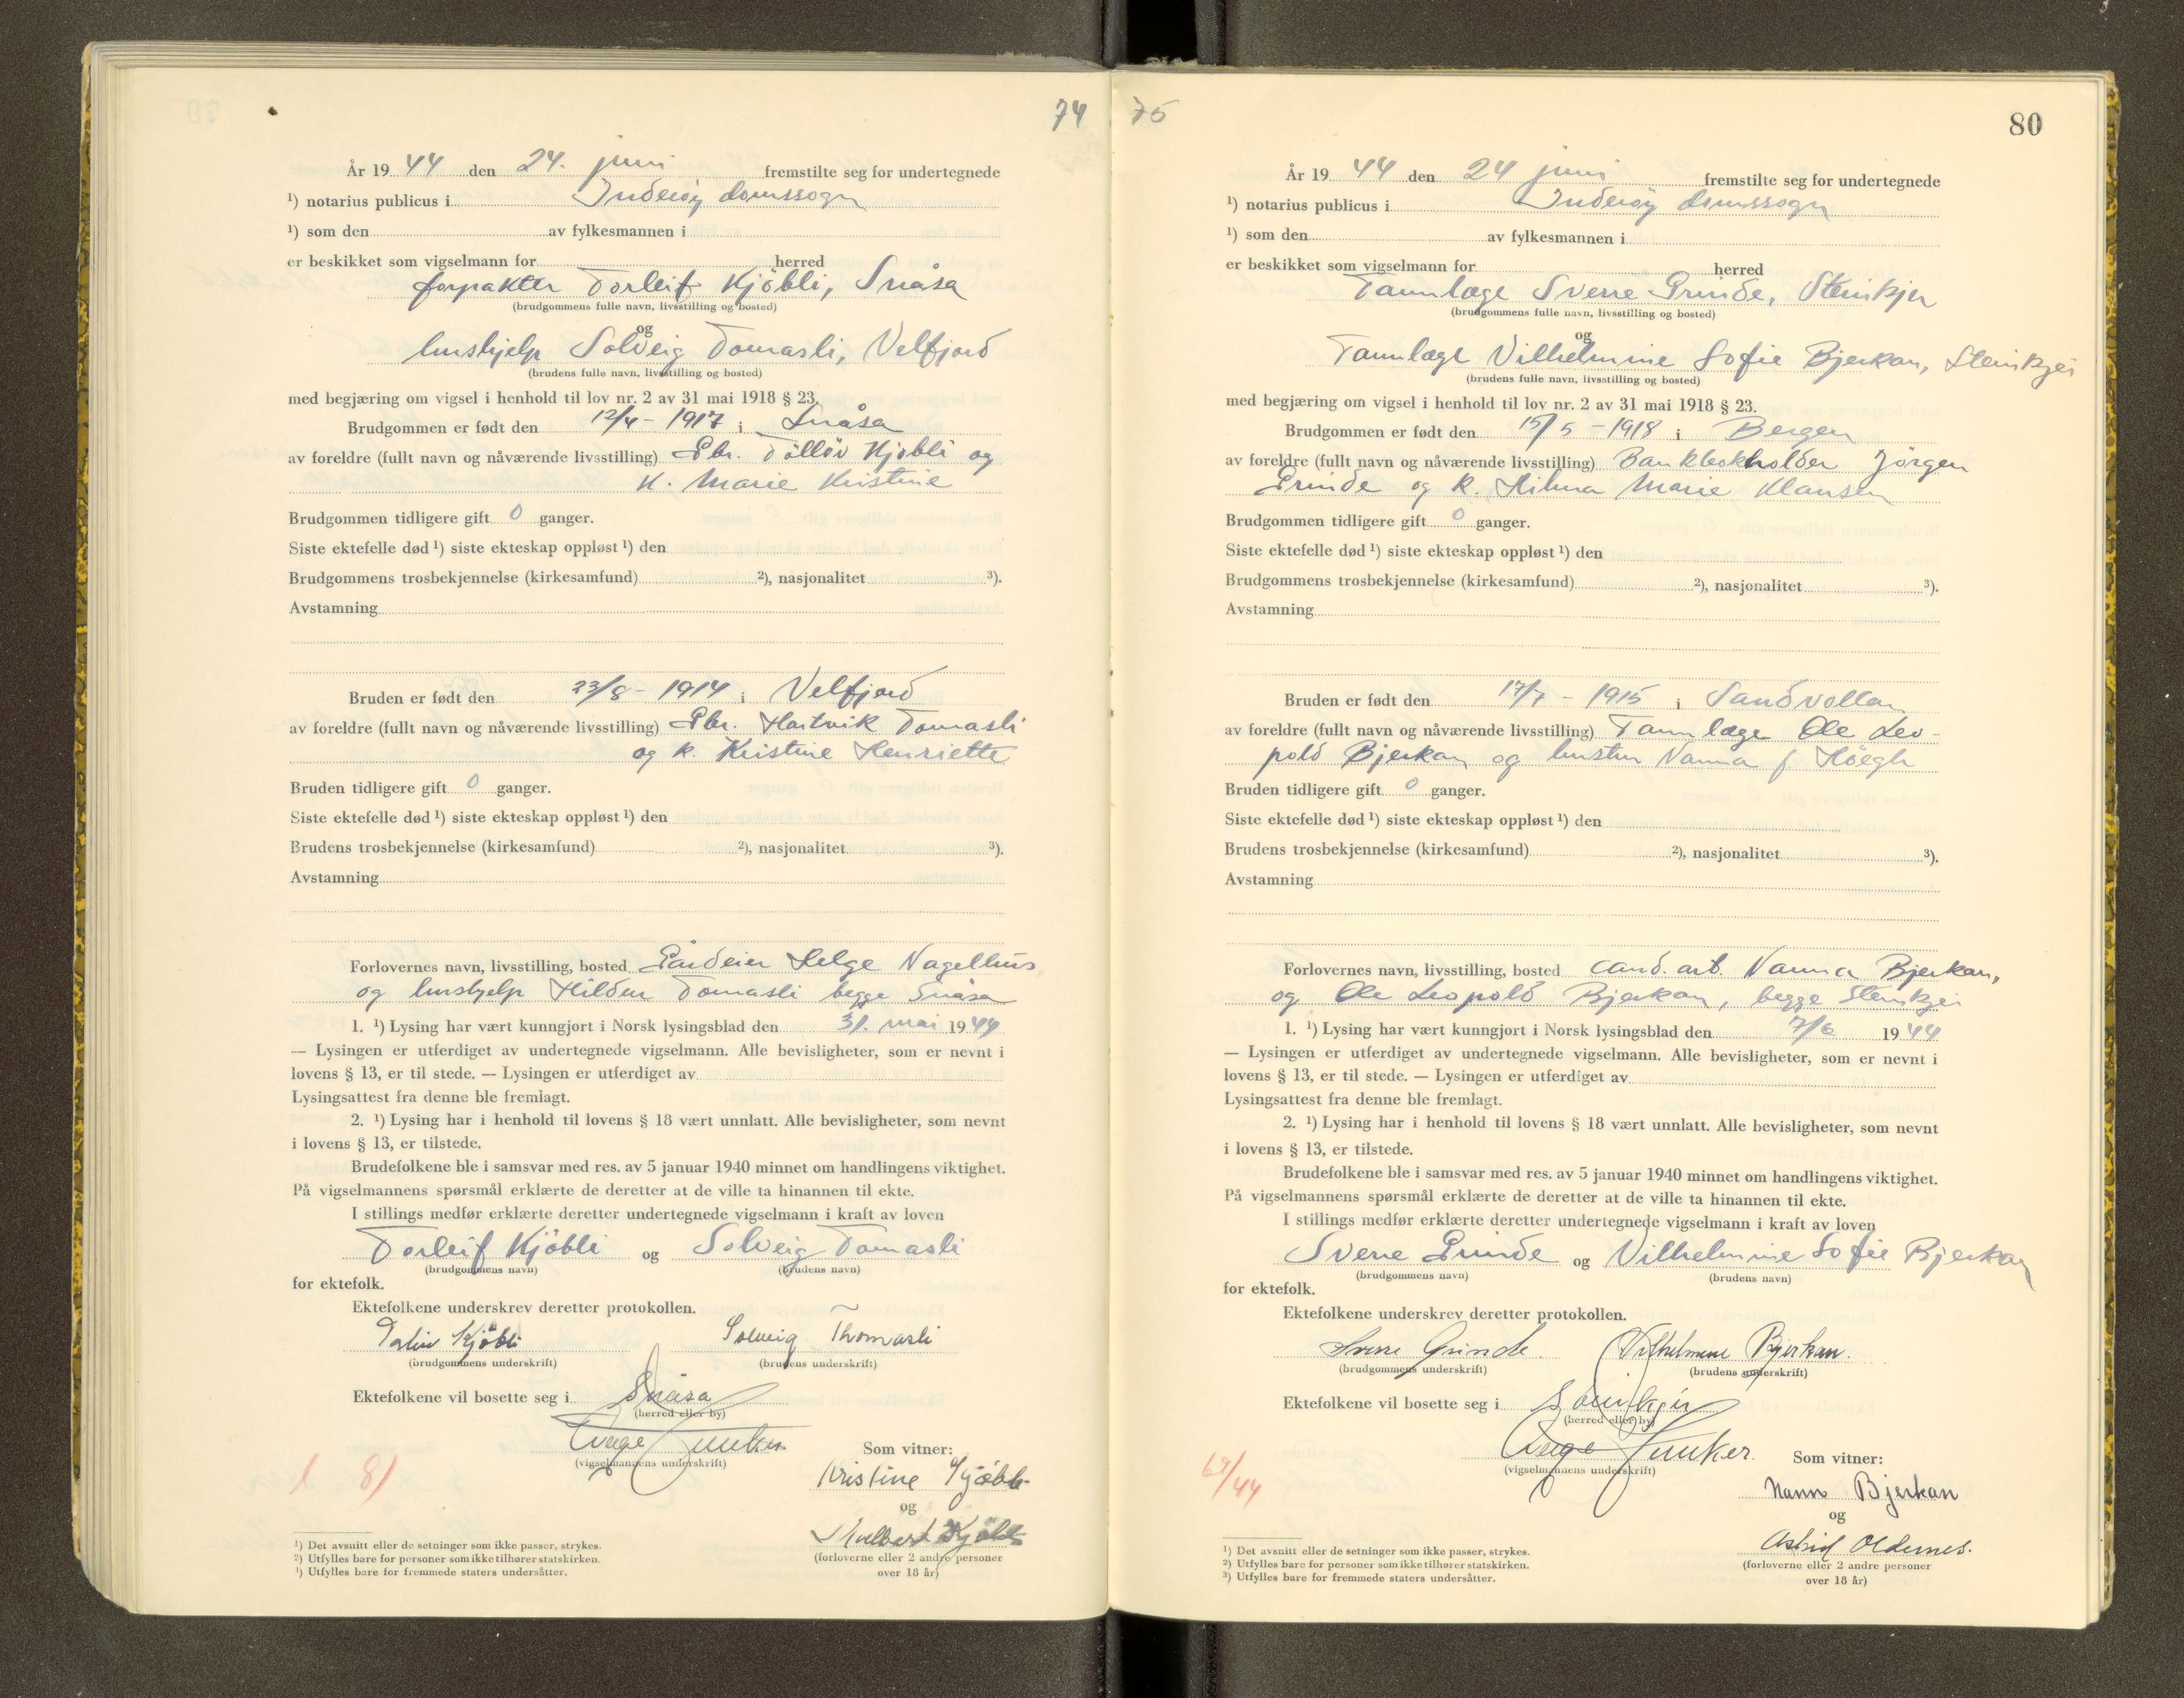 74
År 19 44 den 24. juni fremstilte seg for undertegnede
¹) notarius publicus i Inderöy domssogn
¹) som den av fylkesmannen i
er beskikket som vigselmann for herred
forpakter Torleif Kjöbli, Snåsa
(brudgommens fulle navn, livsstilling og bosted)
og
hushjelp Solveig Tomasli, Velfjord
(brudens fulle navn, livsstilling og bosted)
med begjæring om vigsel i henhold til lov nr. 2 av 31 mai 1918 § 23.
Brudgommen er født den 12/4 - 1917 i Snåsa
av foreldre (fullt navn og nåværende livsstilling) Gbr. Tollöv Kjöbli og
k. Marie Kristine
Brudgommen tidligere gift 0 ganger.
Siste ektefelle død ¹) siste ekteskap oppløst ¹) den
Brudgommens trosbekjennelse (kirkesamfund) ²), nasjonalitet ³).
Avstamning
Bruden er født den 23/8 - 1914 i Velfjord
av foreldre (fullt navn og nåværende livsstilling) Gbr. Hartvik Tomasli
og k. Kristine Henriette
Bruden tidligere gift 0 ganger.
Siste ektefelle død ¹) siste ekteskap oppløst ¹) den
Brudens trosbekjennelse (kirkesamfund) ²), nasjonalitet ³).
Avstamning
Forlovernes navn, livsstilling, bosted Gårdeier Helge Nagelhus
og hushjelp Hildur Tomasli begge Snåsa
1. ¹) Lysing har vært kunngjort i Norsk lysingsblad den 31. mai 1944
— Lysingen er utferdiget av undertegnede vigselmann. Alle bevisligheter, som er nevnt i
lovens § 13, er til stede. — Lysingen er utferdiget av
Lysingsattest fra denne ble fremlagt.
2. ¹) Lysing har i henhold til lovens § 18 vært unnlatt. Alle bevisligheter, som nevnt
i lovens § 13, er tilstede.
Brudefolkene ble i samsvar med res. av 5 januar 1940 minnet om handlingens viktighet.
På vigselmannens spørsmål erklærte de deretter at de ville ta hinannen til ekte.
I stillings medfør erklærte deretter undertegnede vigselmann i kraft av loven
Torleif Kjöbli og Solveig Tomasli
(brudgommens navn) (brudens navn)
for ektefolk.
Ektefolkene underskrev deretter protokollen.
Kjöbli Solveig Thomasli
(brudgommens underskrift) (brudens underskrift)
Ektefolkene vil bosette seg i Snåsa
(herred eller by)
Aage Junker
(vigselmannens underskrift)
Som vitner:
Kristine Kjöbli
og
Kjöbli
(forloverne eller 2 andre personer
over 18 år)
¹) Det avsnitt eller de setninger som ikke passer, strykes.
²) Utfylles bare for personer som ikke tilhører statskirken.
³) Utfylles bare for fremmede staters undersåtter.
75
80
År 19 44 den 24 juni fremstilte seg for undertegnede
¹) notarius publicus i Inderöy domssogn
¹) som den av fylkesmannen i
er beskikket som vigselmann for herred
Tannlæge Sverre Grinde, Steinkjer
(brudgommens fulle navn, livsstilling og bosted)
og
Tannlæge Vilhelmine Sofie Bjerkan, Steinkjer
(brudens fulle navn, livsstilling og bosted)
med begjæring om vigsel i henhold til lov nr. 2 av 31 mai 1918 § 23.
Brudgommen er født den 15/5 - 1918 i Bergen
av foreldre (fullt navn og nåværende livsstilling) Bankbokholder Jörgen
Grinde og k. Hilma Marie Klausen
Brudgommen tidligere gift 0 ganger.
Siste ektefelle død ¹) siste ekteskap oppløst ¹) den
Brudgommens trosbekjennelse (kirkesamfund) ²), nasjonalitet ³).
Avstamning
Bruden er født den 17/7 - 1915 i Sandvollan
av foreldre (fullt navn og nåværende livsstilling) Tannlæge Ole Leo-
pold Bjerkan og hustru Nanna f Höegh
Bruden tidligere gift 0 ganger.
Siste ektefelle død ¹) siste ekteskap oppløst ¹) den
Brudens trosbekjennelse (kirkesamfund) ²), nasjonalitet ³).
Avstamning
Forlovernes navn, livsstilling, bosted cand. art. Nanna Bjerkan,
og Ole Leopold Bjerkan, begge Steinkjer
1. ¹) Lysing har vært kunngjort i Norsk lysingsblad den 7/6 1944
— Lysingen er utferdiget av undertegnede vigselmann. Alle bevisligheter, som er nevnt i
lovens § 13, er til stede. — Lysingen er utferdiget av
Lysingsattest fra denne ble fremlagt.
2. ¹) Lysing har i henhold til lovens § 18 vært unnlatt. Alle bevisligheter, som nevnt
i lovens § 13, er tilstede.
Brudefolkene ble i samsvar med res. av 5 januar 1940 minnet om handlingens viktighet.
På vigselmannens spørsmål erklærte de deretter at de ville ta hinannen til ekte.
I stillings medfør erklærte deretter undertegnede vigselmann i kraft av loven
Sverre Grinde og Vilhelmine Sofie Bjerkan
(brudgommens navn) (brudens navn)
for ektefolk.
Ektefolkene underskrev deretter protokollen.
Sverre Grinde. Vilhelmine Bjerkan.
(brudgommens underskrift) (brudens underskrift)
Ektefolkene vil bosette seg i Steinkjer
(herred eller by)
Aage Junker.
(vigselmannens underskrift)
69/44
Som vitner:
Nanna Bjerkan
og
Astrid Oldernes.
(forloverne eller 2 andre personer
over 18 år)
¹) Det avsnitt eller de setninger som ikke passer, strykes.
²) Utfylles bare for personer som ikke tilhører statskirken.
³) Utfylles bare for fremmede staters undersåtter.